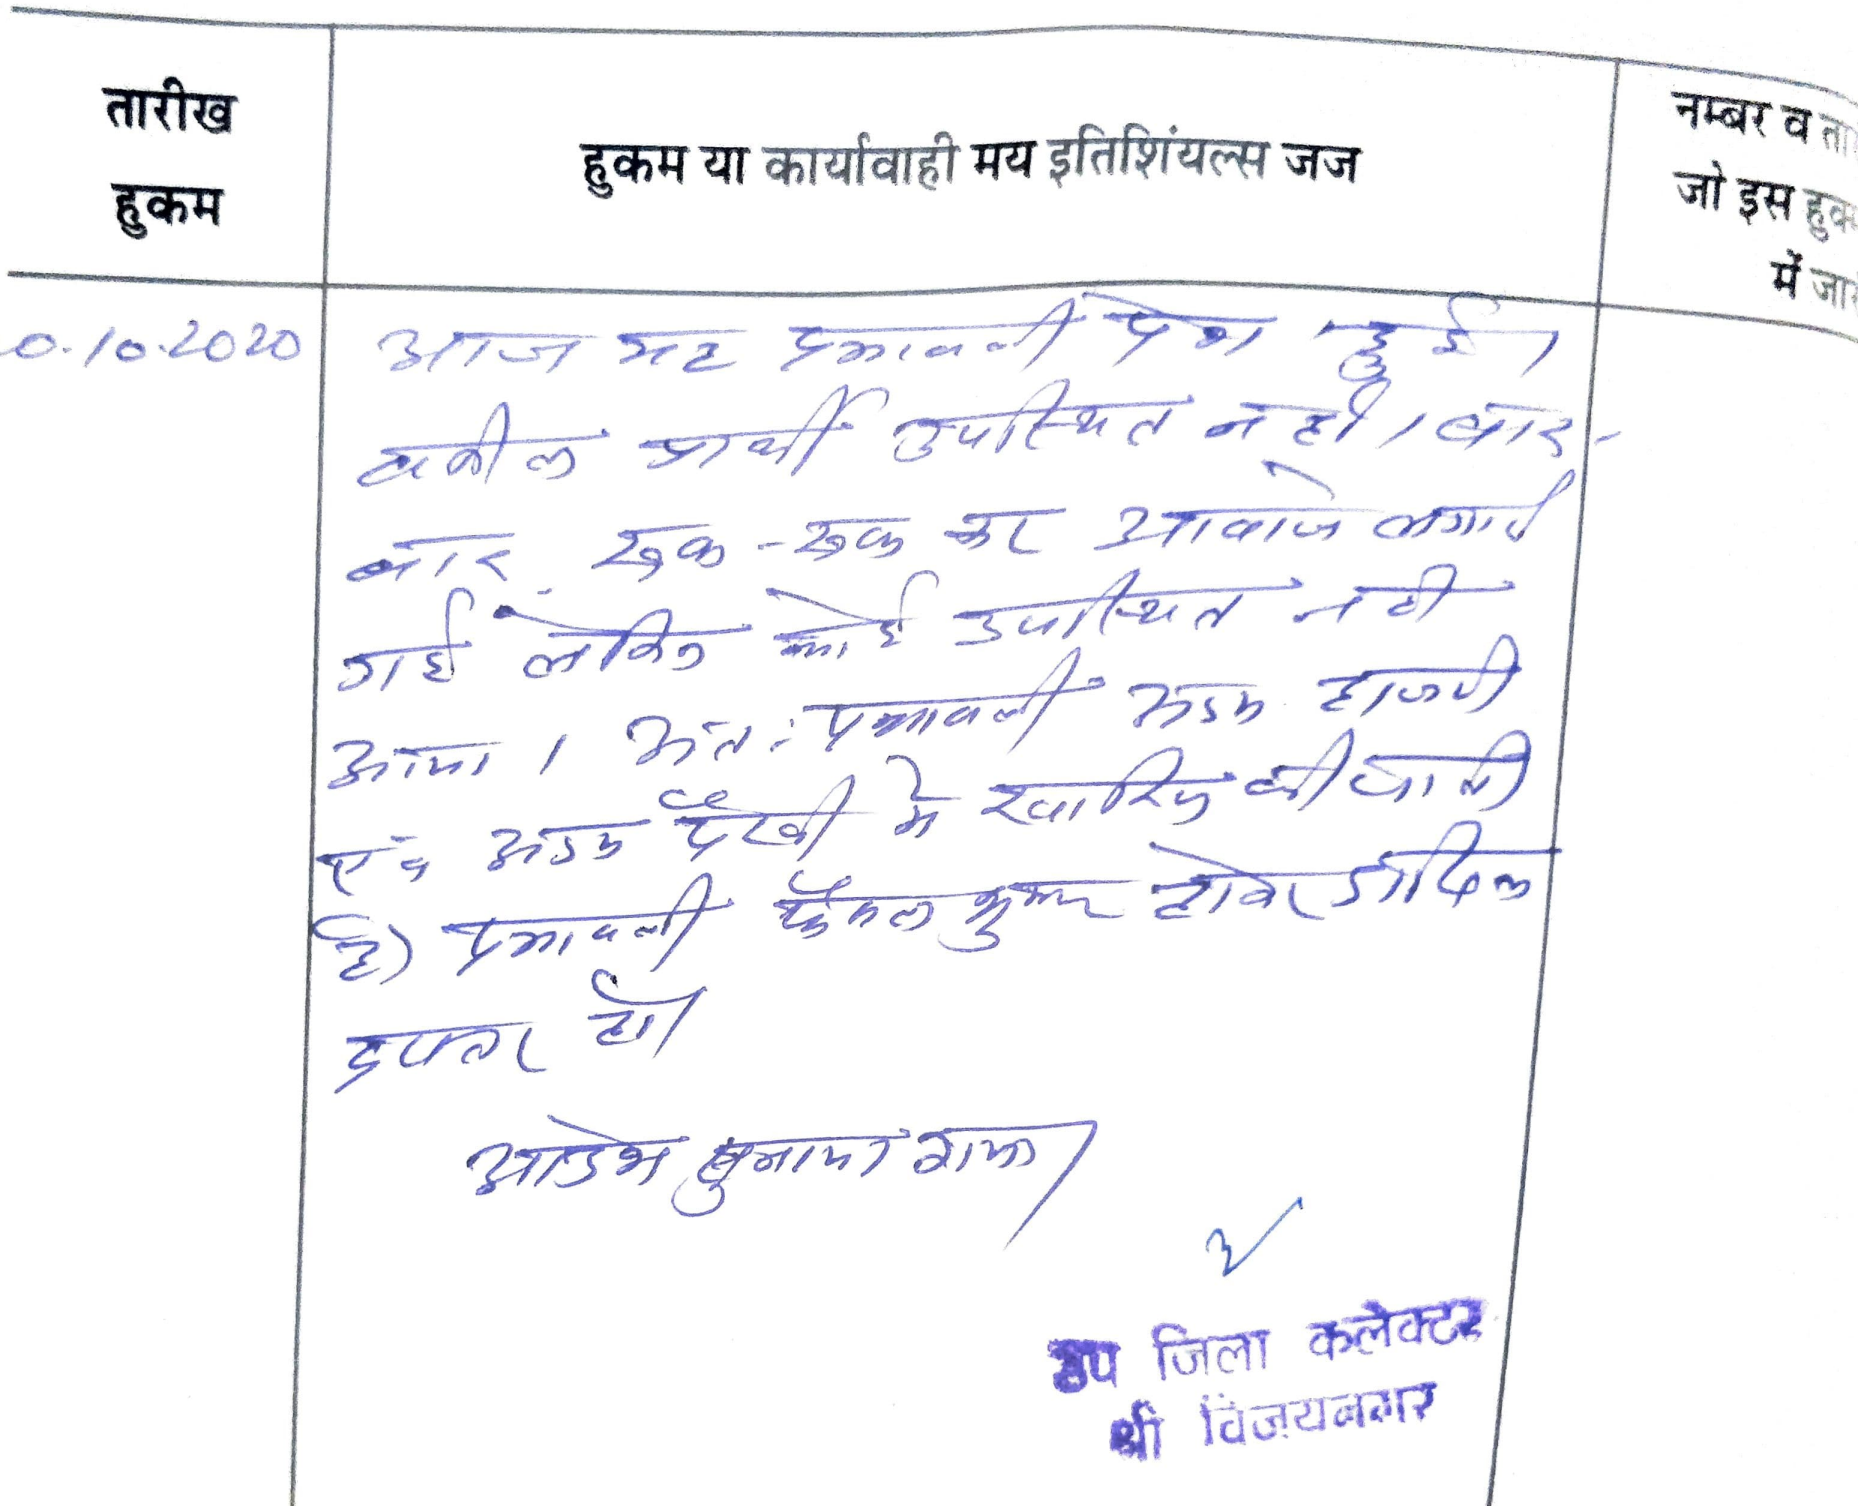 तारीख
हुकम
हुकम या कार्यावाही मय इतिशिंयल्स जज
नम्बर व ता
जो इस हुक
में जा
0.10.2020
आज यह पत्रावली पेश हुई।
वकील प्रार्थी उपस्थित नही। बार-
बार रूक-रूक कर आवाजे लगाई
गई लेकिन कोई उपस्थित नही
आया। अंत: पत्रावली अदम हाजरी
एंव अदम पैरवी मे खारिज की जाती
है) पत्रावली फैसल शुमार होकर दाखिल
दफतर हो।
आदेश सुनाया गया।
उप जिला कलेक्टर
श्री विजयनगर